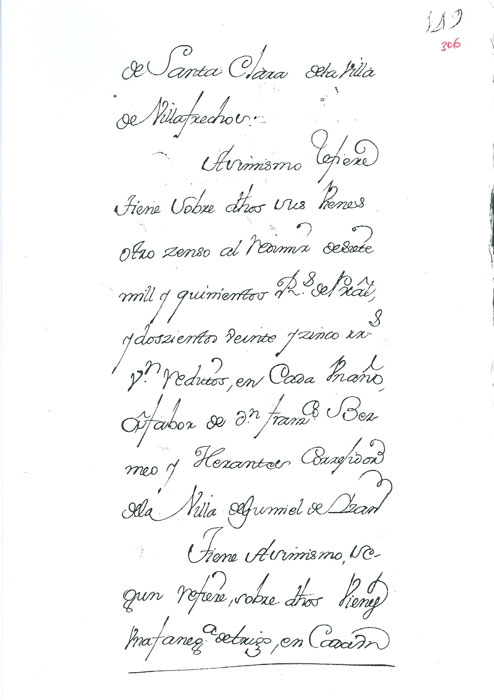 119
306
de Santa Clara dela Villa
de Villafrechos.
Assimismo refiere
tiene sobre dhos sus vienes
otro zenso al redimir desiete
mill y quinientos Rs. de Pral,
y doszientos veinte y zinco rrs
vn. reditos, en Cada vn año,
à fabor de Dn. franco. Ber
meo y Correxidor
dela Villa de Gumiel de Izan
Tiene Assimismo, se
gun refiere, sobre dhos vienes
vna fanega de trigo, en Cada vn